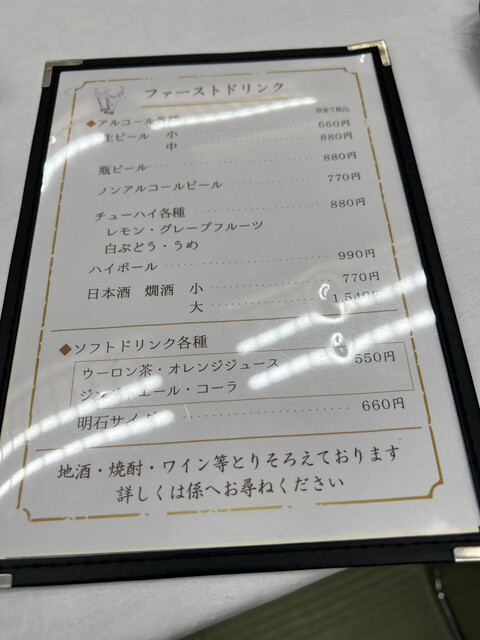 ファーストドリンク
◆アルコール各種
生ビール 小 660円
中 880円
瓶ビール 880円
ノンアルコールビール 770円
チューハイ各種 880円
レモン・グレープフルーツ
白ぶどう・うめ
ハイボール 990円
日本酒 燗酒 小 770円
大 1,540円
◆ソフトドリンク各種
ウーロン茶・オレンジジュース 550円
ジンジャエール・コーラ
明石サイダー 660円
地酒・焼酎・ワイン等とりそろえております
詳しくは係へお尋ねください